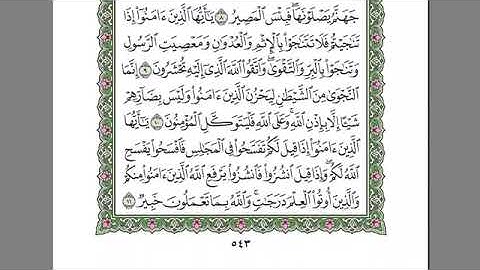 جَهَنَّمُ يَصْلَوْنَهَا ۖ فَبِئْسَ ٱلْمَصِيرُ ٨ يَٰٓأَيُّهَا ٱلَّذِينَ ءَامَنُوٓا۟ إِذَا
تَنَٰجَيْتُمْ فَلَا تَتَنَٰجَوْا۟ بِٱلْإِثْمِ وَٱلْعُدْوَٰنِ وَمَعْصِيَتِ ٱلرَّسُولِ
وَتَنَٰجَوْا۟ بِٱلْبِرِّ وَٱلتَّقْوَىٰ ۖ وَٱتَّقُوا۟ ٱللَّهَ ٱلَّذِىٓ إِلَيْهِ تُحْشَرُونَ ٩ إِنَّمَا
ٱلنَّجْوَىٰ مِنَ ٱلشَّيْطَٰنِ لِيَحْزُنَ ٱلَّذِينَ ءَامَنُوا۟ وَلَيْسَ بِضَآرِّهِمْ
شَيْـًٔا إِلَّا بِإِذْنِ ٱللَّهِ ۚ وَعَلَى ٱللَّهِ فَلْيَتَوَكَّلِ ٱلْمُؤْمِنُونَ ١٠ يَٰٓأَيُّهَا
ٱلَّذِينَ ءَامَنُوٓا۟ إِذَا قِيلَ لَكُمْ تَفَسَّحُوا۟ فِى ٱلْمَجَٰلِسِ فَٱفْسَحُوا۟ يَفْسَحِ
ٱللَّهُ لَكُمْ ۖ وَإِذَا قِيلَ ٱنشُزُوا۟ فَٱنشُزُوا۟ يَرْفَعِ ٱللَّهُ ٱلَّذِينَ ءَامَنُوا۟ مِنكُمْ
وَٱلَّذِينَ أُوتُوا۟ ٱلْعِلْمَ دَرَجَٰتٍ ۚ وَٱللَّهُ بِمَا تَعْمَلُونَ خَبِيرٌ ١١
٥٤٣